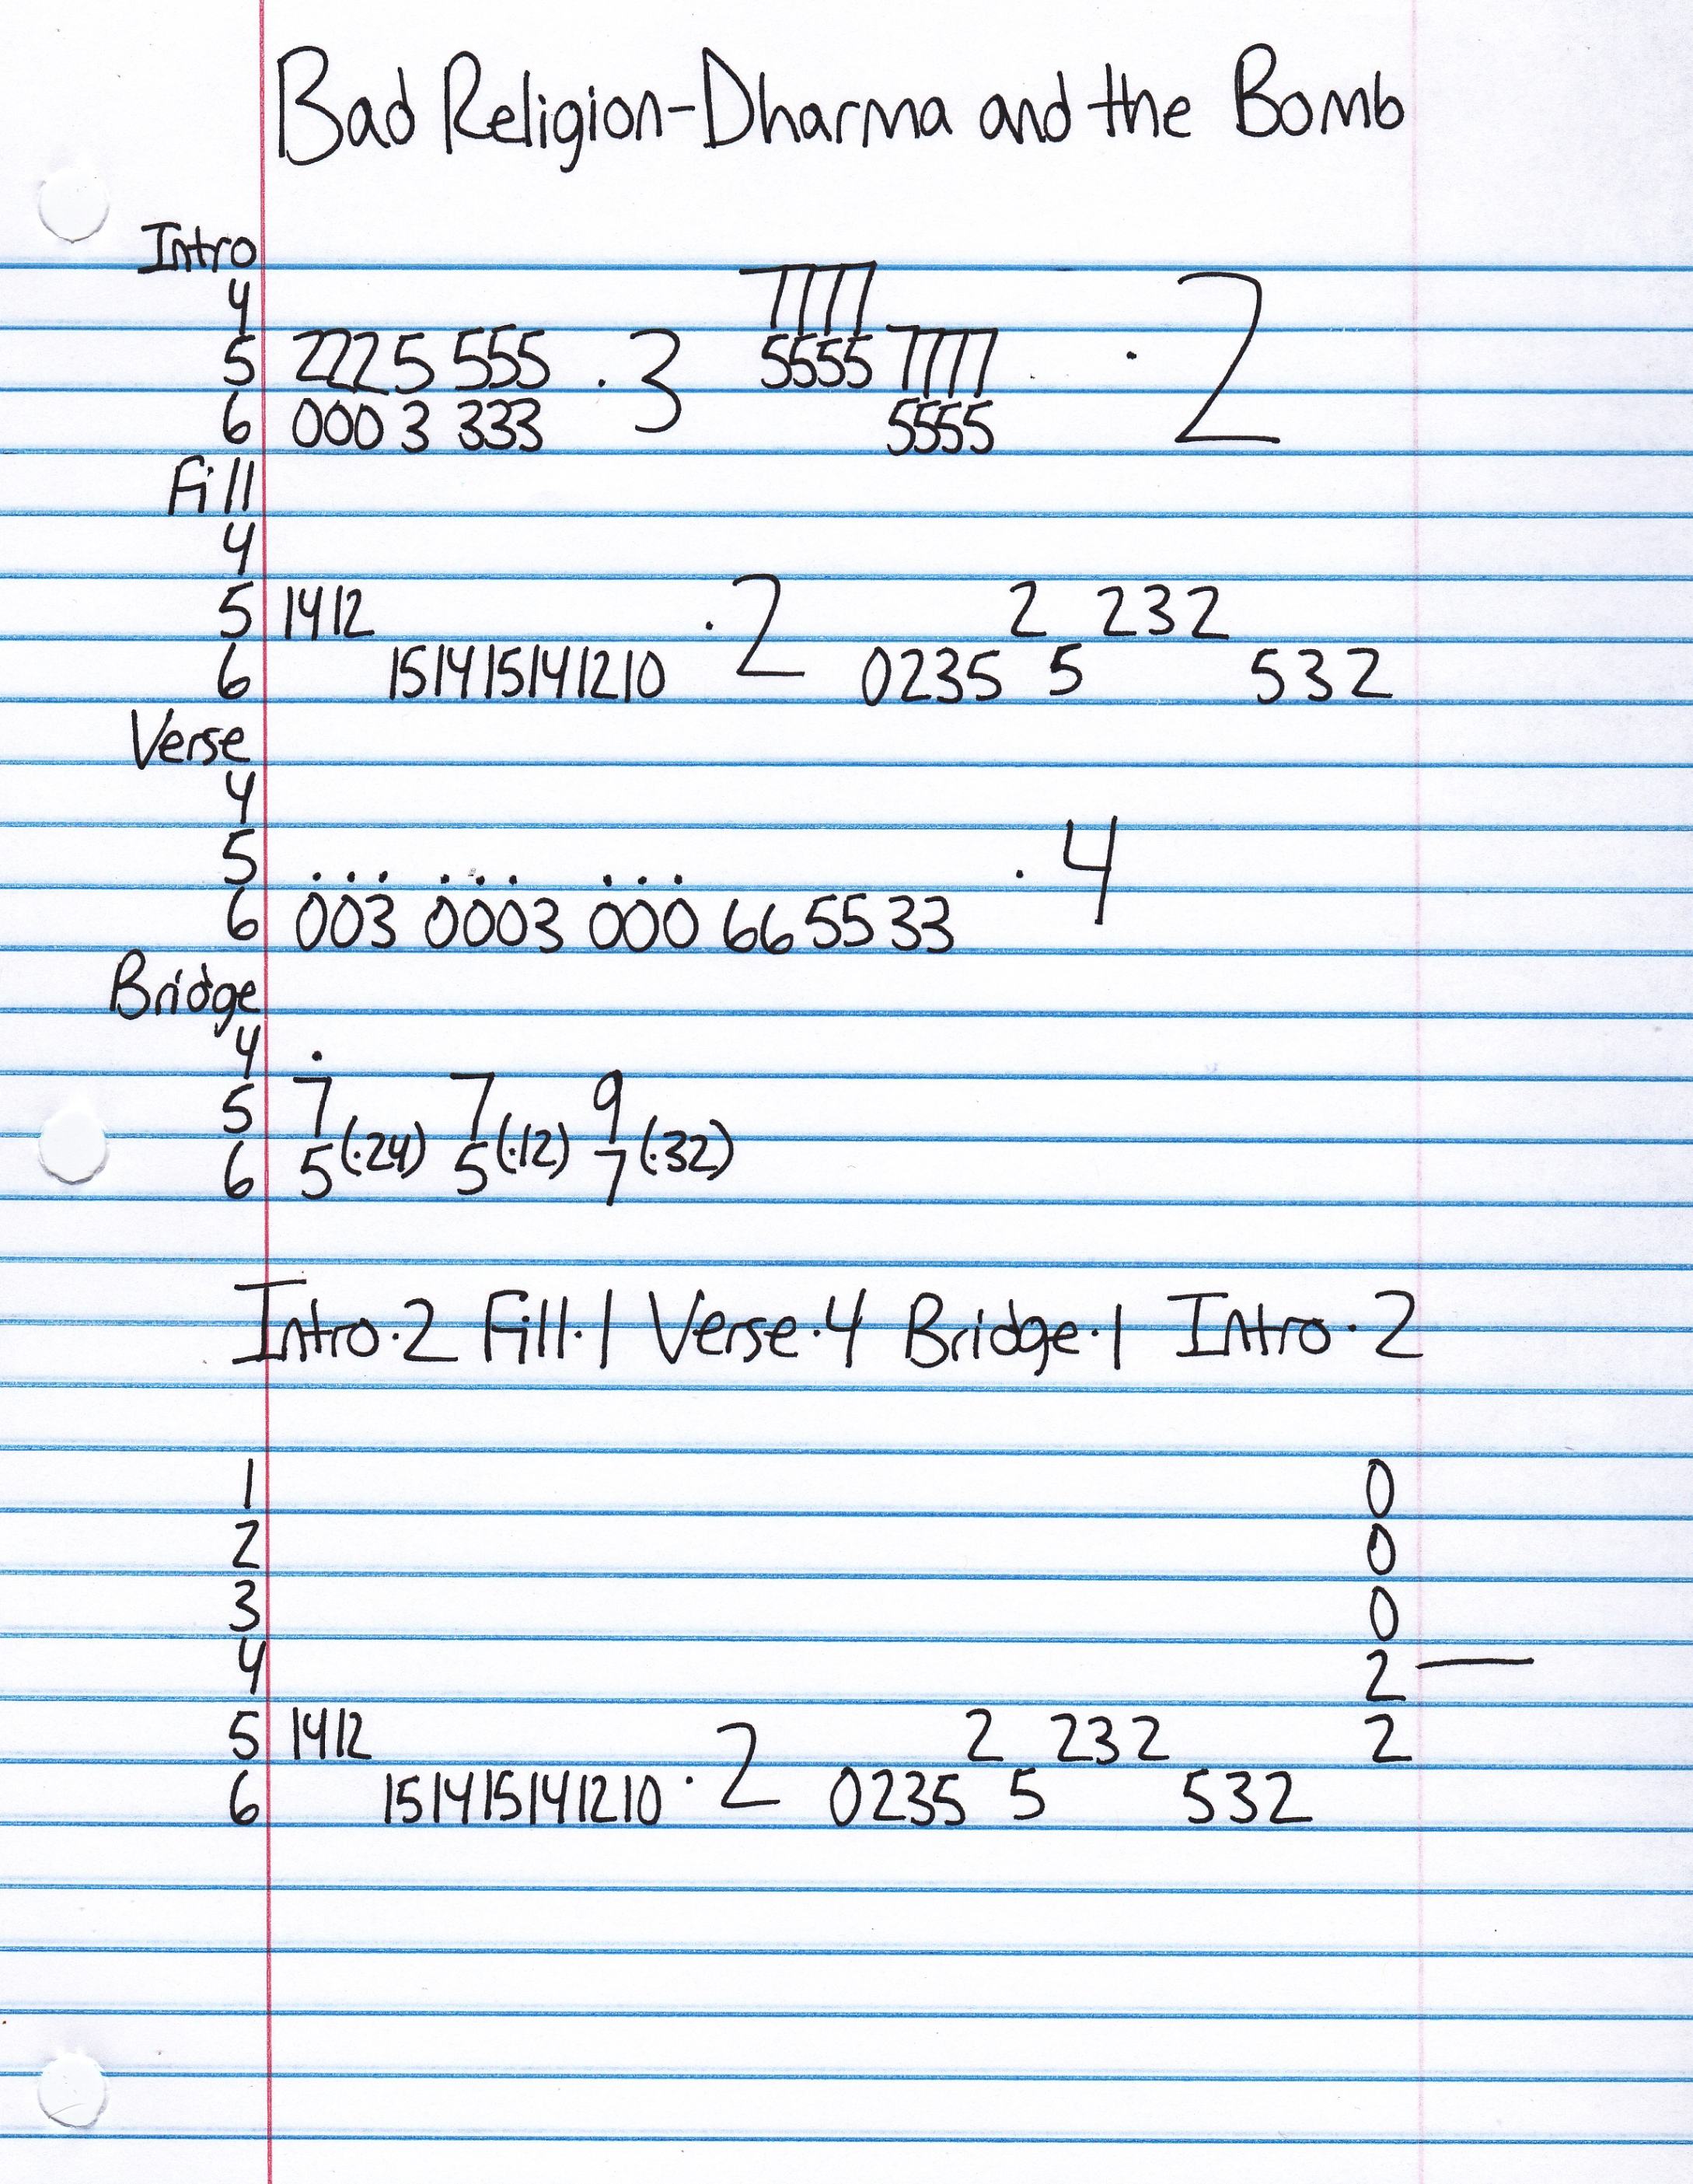 Bad Religion-Dharma and the Bomb
Intro
4 7777
5 2225 555 · 3 5555 7777 · 2
6 000 3 333 5555
Fill
4
5 1412 · 2 2 232
6 151415141210 0235 5 532
Verse
4
5 ... ... ... · 4
6 003 0003 000 66 55 33
Bridge
4 .
5 7 7 9
6 5(·24) 5(·12) 7(·32)
Intro·2 Fill·1 Verse·4 Bridge·1 Intro·2
1 0
2 0
3 0
4 2 —
5 1412 2 232 2
6 151415141210 · 2 0235 5 532